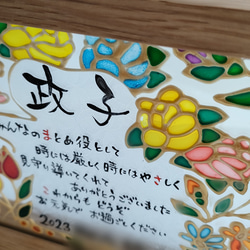 政子
みんなのまとめ役として
時には厳しく時にはやさしく
見守り導いてくれて
ありがとうございました
これからもどうぞ
お元気で お過ごしください
2023